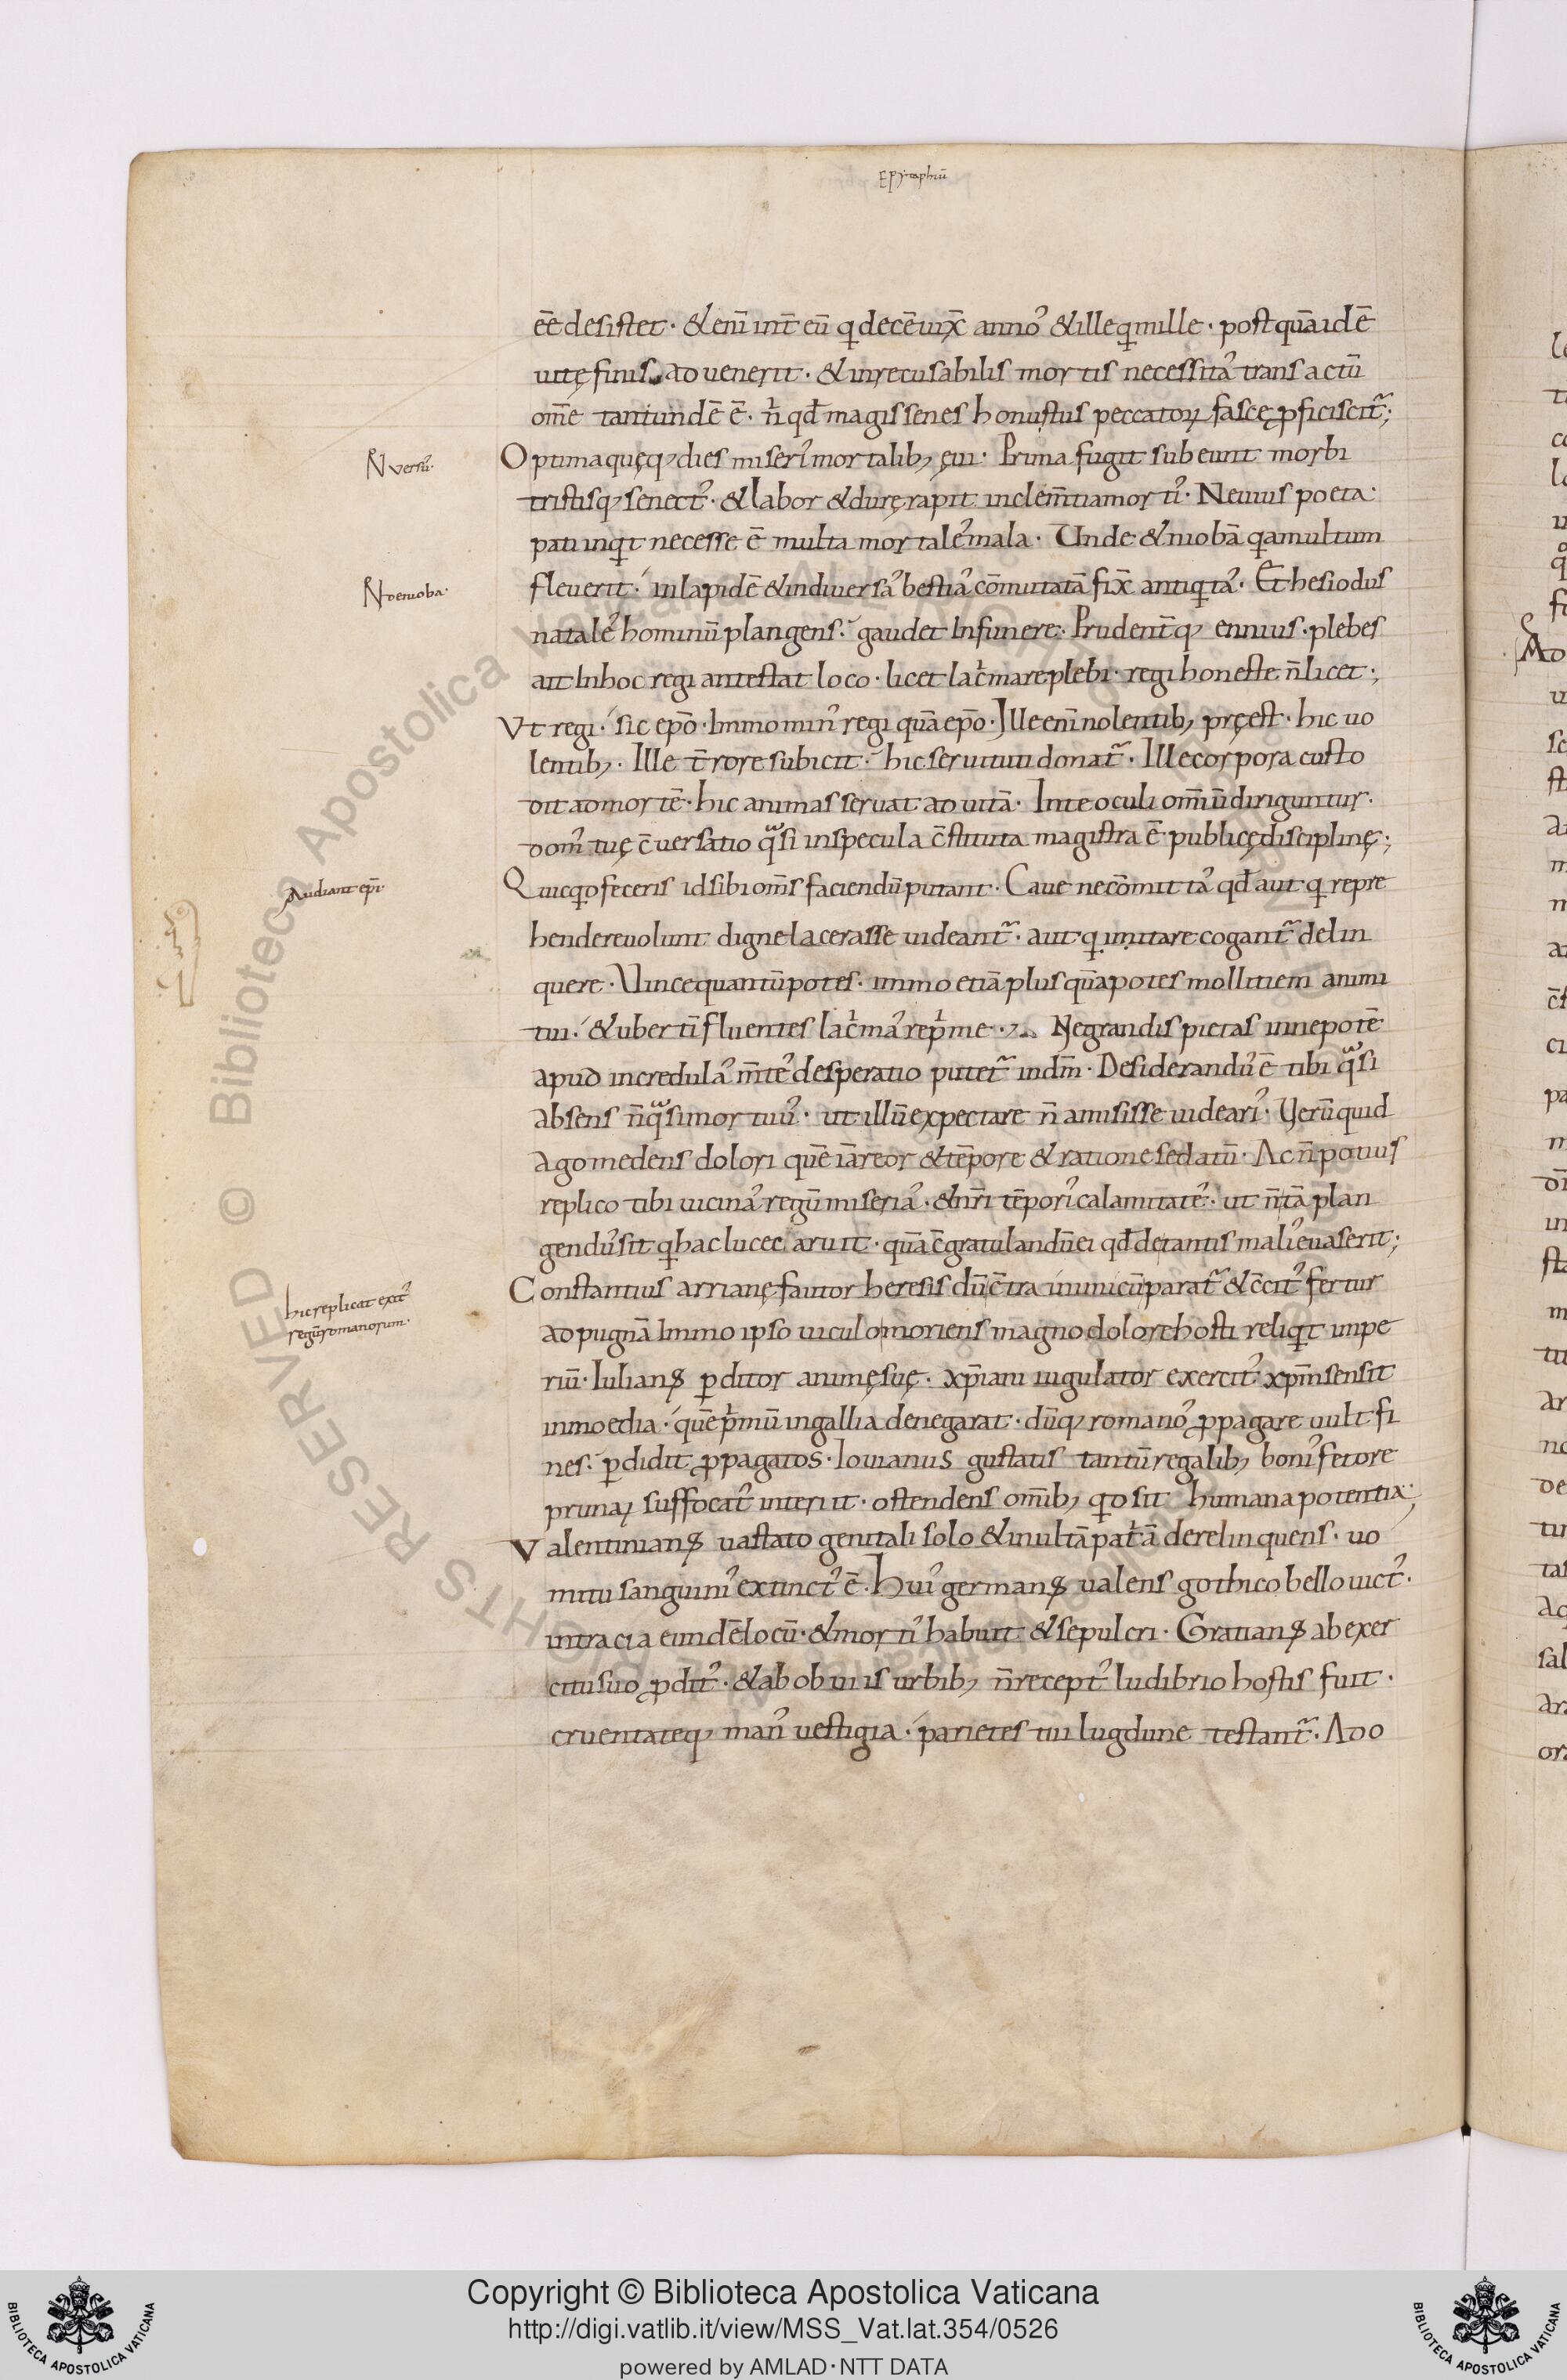 Epytaphiū
ēē desistet · & eni͞ int̄ eū q decē uix̄ annoˀ & ille q mille · postquā idē
uitę finis aduenerit · & inrecusabilis mortis necessitaˀ transactū
om̄e tantundē ē · n̄ qđ magis senes honustus peccatoꝝ fascę ꝓficiscit᷑;
N versū·
Optima quęqꝫ dies miseriˀ mortalibꝫ ęui · Prima fugit subeunt morbi
tristisqꝫ senectˀ · & labor & durę rapit inclem̄tia mortiˀ · Neuius poeta·
pati inqt necesse ē multa mortaleˀ mala · Unde & niobā qa multum
N de nioba·
fleuerit · in lapidē & in diuersaˀ bestiaˀ cōmutatā fix̄ antiqtaˀ · Et hesiodus
nataleˀ hominū plangens · gaudet In funere · Prudent̄qꝫ ennius · plebes
ait In hoc regi antestat loco · licet lac̍mare plebi · regi honeste n̄ licet ·;
Vt regi · sic ep̄o · Immo minˀ regi quā ep̄o · Ille eni͞ nolentibꝫ pręest · hic uo
lentibꝫ · Ille t̄rore subicit · hic seruituti donat᷑ · Ille corpora custo
dit ad mortē · hic animas seruat ad uitā · In te oculi om̄iū diriguntur ·
domˀ tuę c̄uersatio qͣsi in specula c̄stituta magistra ē publicę disciplinę ·;
Audiant ep̄i·
Quicqd feceris id sibi om̄s faciendū putant · Caue ne cōmittaˀ qđ aut q repre
hendere uolunt digne lacerasse uideant᷑ · aut q imitare cogant᷑ delin
quere · Uince quantū potes · immo etiā plus quā potes mollitiem animi
tui · & ubertī fluentes lac̍maˀ rep̍me · Ne grandis pietas in nepotē
apud incredulaˀ m̄teˀ desperatio putet᷑ in dm̄ · Desiderandˀ ē tibi qͣsi
absens n̄ qͣsi mortuuˀ · ut illū expectare n̄ amisisse uideariˀ · Uerū quid
ago medens dolori quē iā reor & tēpore & ratione sedatū · Ac n̄ potius
replico tibi uicinaˀ regū miseriaˀ · & nr̄i tēporiˀ calamitateˀ · ut n̄ tā plan
gendˀ sit q hac luce caruit · quā c̄gratulandū ei qđ de tantis maliˀ euaserit;
hic replicat exitˀ
regū romanorum·
Constantius arrianę fautor heresis dū c̄tra inimicū parat᷑ & c̄citˀ fertur
ad pugnā In mopsi uiculo moriens magno dolore hosti reliqt impe
riū · Iulianꝰ ꝑditor animę suę · xp̄iani iugulator exercitˀ xp̄m sensit
in media · quē p̍mū in gallia denegarat · dūqꝫ romanoˀ ꝓpagare uult fi
nes · ꝑdidit ꝓpagatos · Iouianus gustatis tantū regalibꝫ boniˀ fetore
prunaꝝ suffocatˀ interiit · ostendens om̄ibꝫ qd sit humana potentia·
Valentinianꝰ uastato genitali solo & inultā pat̍ā derelinquens · uo
mitu sanguiniˀ extinctˀ ē · Huiˀ germanꝰ ualens gothico bello uictˀ ·
intracia eundē locū · & mortiˀ habuit & sepulcri · Gratianꝰ ab exer
citu suo ꝓditˀ · & ab obuiis urbibꝫ n̄ receptˀ ludibrio hostis fuit ·
cruentateqꝫ manˀ uestigia · parietes tui lugdune testant᷑ · Ado
Copyright © Biblioteca Apostolica Vaticana
http://digi.vatlib.it/view/MSS_Vat.lat.354/0526
powered by AMLAD·NTT DATA